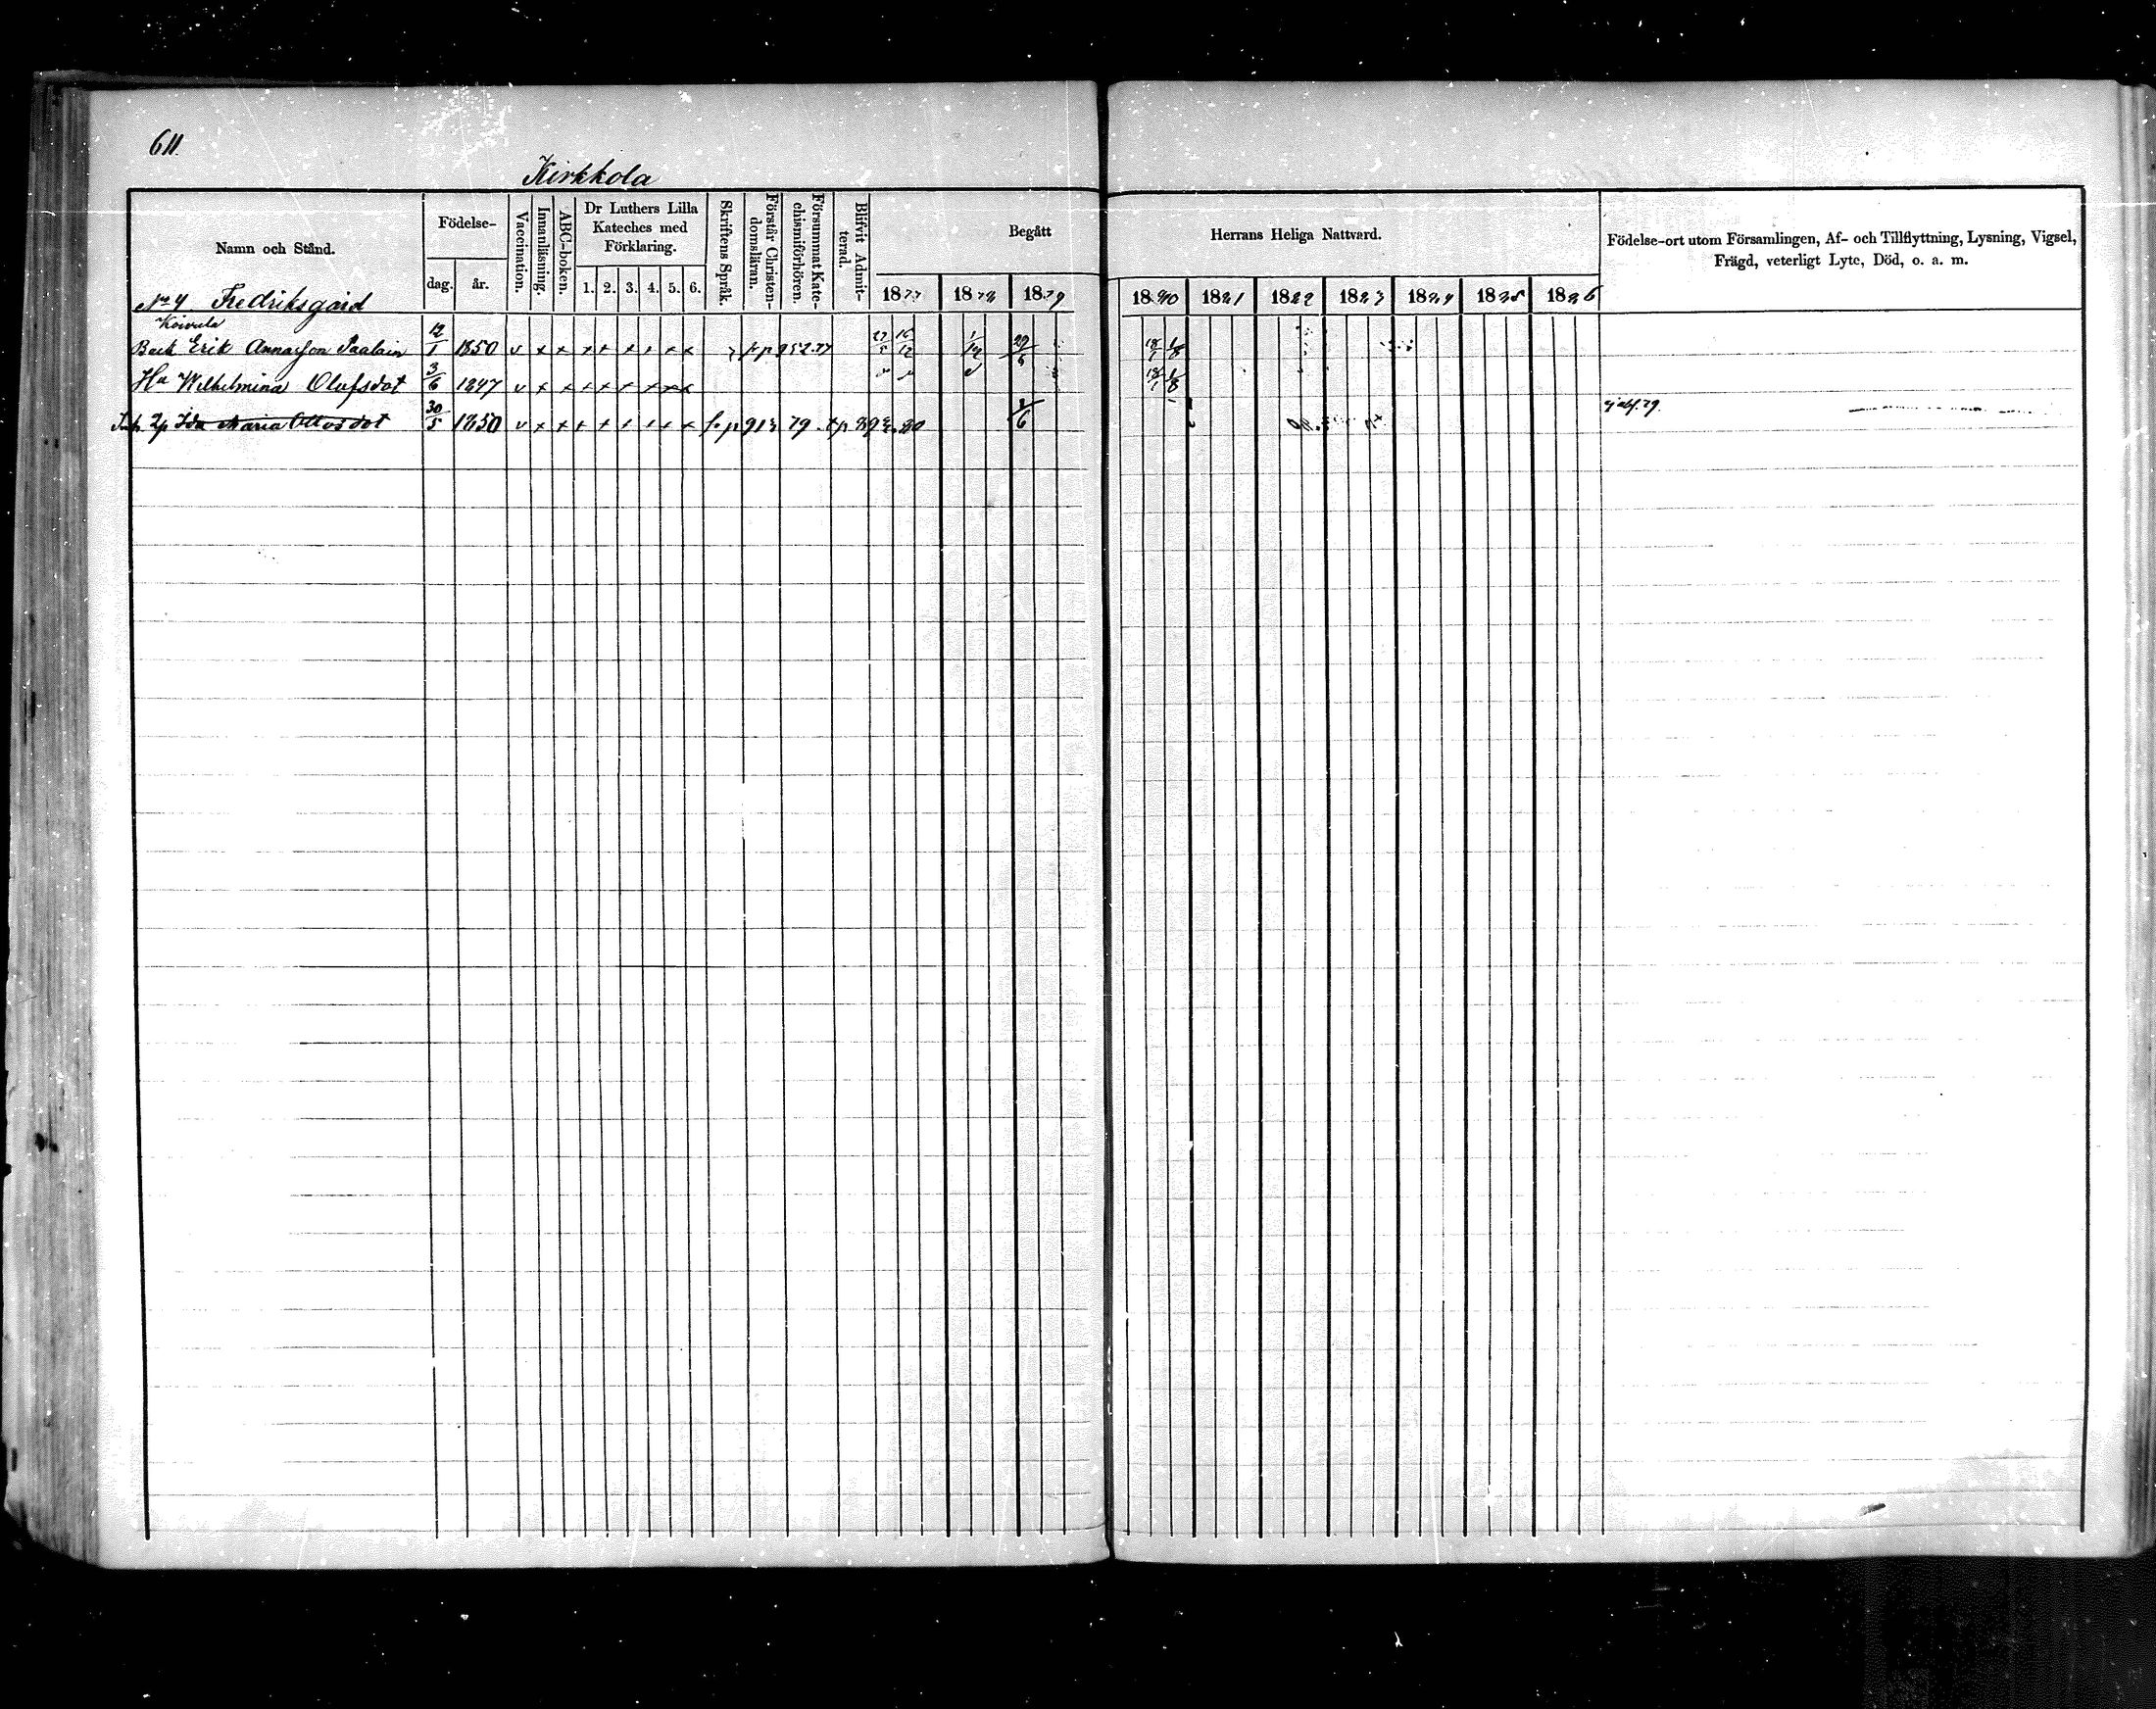 611.
Kirkkola
Namn och Stånd.
Födelse-
dag.
år.
Vaccination.
Innanläsning.
ABC-boken.
Dr Luthers Lilla
Kateches med
Förklaring.
1. 2. 3. 4. 5. 6.
Skriftens Språk.
Förstår Christen-
domsläran.
Försummat Kate-
chismiförhören.
Blifvit Admit-
terad.
Begått
Herrans Heliga Nattvard.
1877 1878 1879 1880 1881 1882 1883 1884 1885 1886
Födelse-ort utom Församlingen, Af- och Tillflyttning, Lysning, Vigsel,
Frägd, veterligt Lyte, Död, o. a. m.
No 4 Fredriksgård
Koivula
Back Erik Annasson 12/1 1850 v x x x x x x x x 27/5 16/12 29/6 18/1 1/8
Hu Wilhelmina Olofsdot 3/6 1847 v x x x x x x x x 18/1 1/8
Ida Maria Ottosdot 30/5 1850 v x x x x x x x x 79